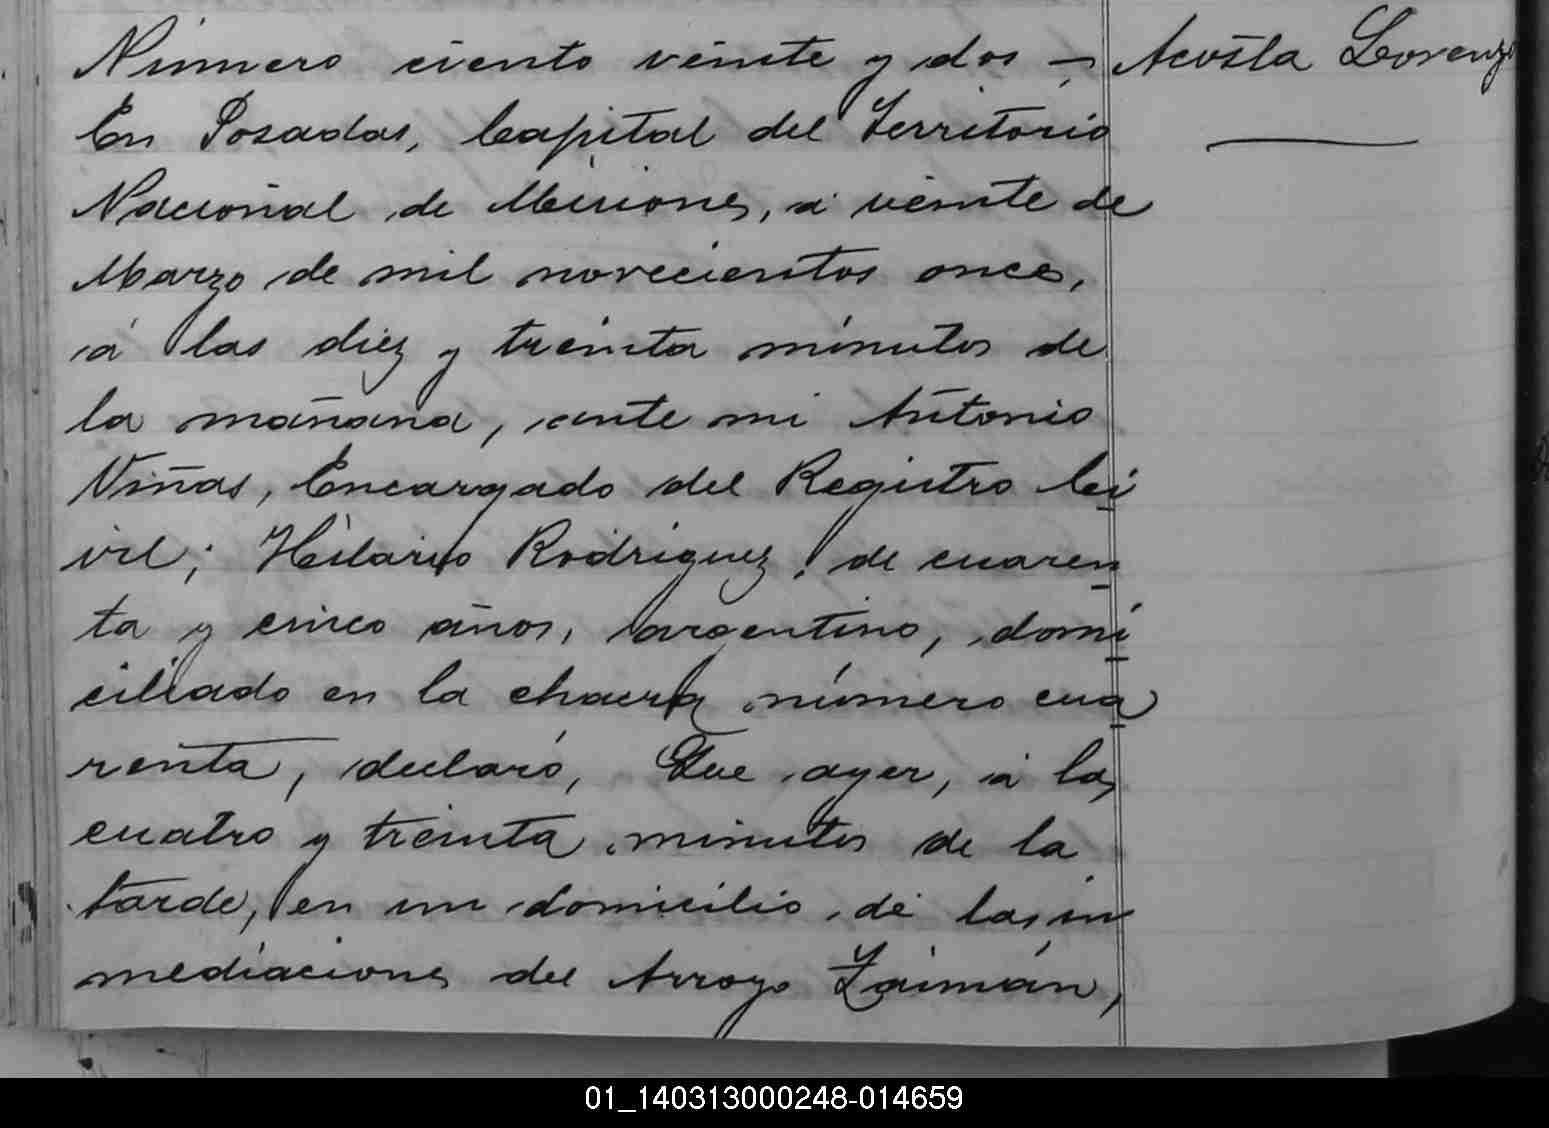 Número ciento veinte y dos — Acosta Lorenzo
En Posadas, Capital del Territorio
Nacional de Misiones, á veinte de
Marzo de mil novecientos once,
á las diez y treinta minutos de
la mañana, ante mi Antonio
Viñas, Encargado del Registro Ci
vil; Hilario Rodriguez, de cuaren
ta y cinco años, argentino, domi
ciliado en la chacra número cua
renta, declaró, Que ayer, á las
cuatro y treinta minutos de la
tarde, en un domicilio de las in
mediaciones del Arroyo Zaimán,
01_140313000248-014659